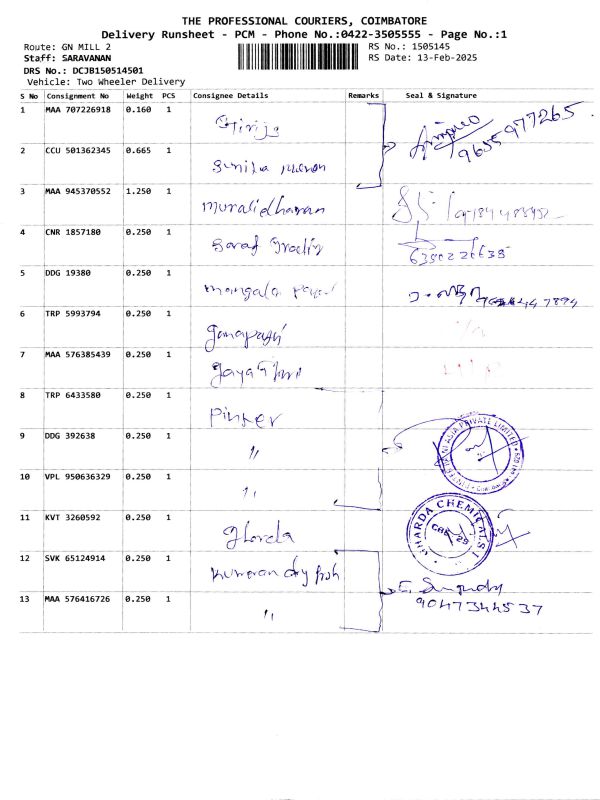 THE PROFESSIONAL COURIERS, COIMBATORE
Delivery Runsheet - PCM - Phone No.:0422-3505555 - Page No.:1
Route: GN MILL 2
RS No.: 1505145
Staff: SARAVANAN
RS Date: 13-Feb-2025
DRS No.: DCJB150514501
Vehicle: Two Wheeler Delivery
S No Consignment No Weight PCS Consignee Details Remarks Seal & Signature
1 MAA 707226918 0.160 1 Girija 9655977265
2 CCU 501362345 0.665 1 Sunita menon
3 MAA 945370552 1.250 1 muralidharan
4 CNR 1857180 0.250 1 Sarag 6380226635
5 DDG 19380 0.250 1 mangala
6 TRP 5993794 0.250 1 Ganapathi
7 MAA 576385439 0.250 1 Jayathri
8 TRP 6433580 0.250 1 Pinter
9 DDG 392638 0.250 1 "
10 VPL 950636329 0.250 1 "
11 KVT 3260592 0.250 1 Gharda GHARDA CHEMICALS
12 SVK 65124914 0.250 1 Kumaran dry fish
13 MAA 576416726 0.250 1 " 9047344537